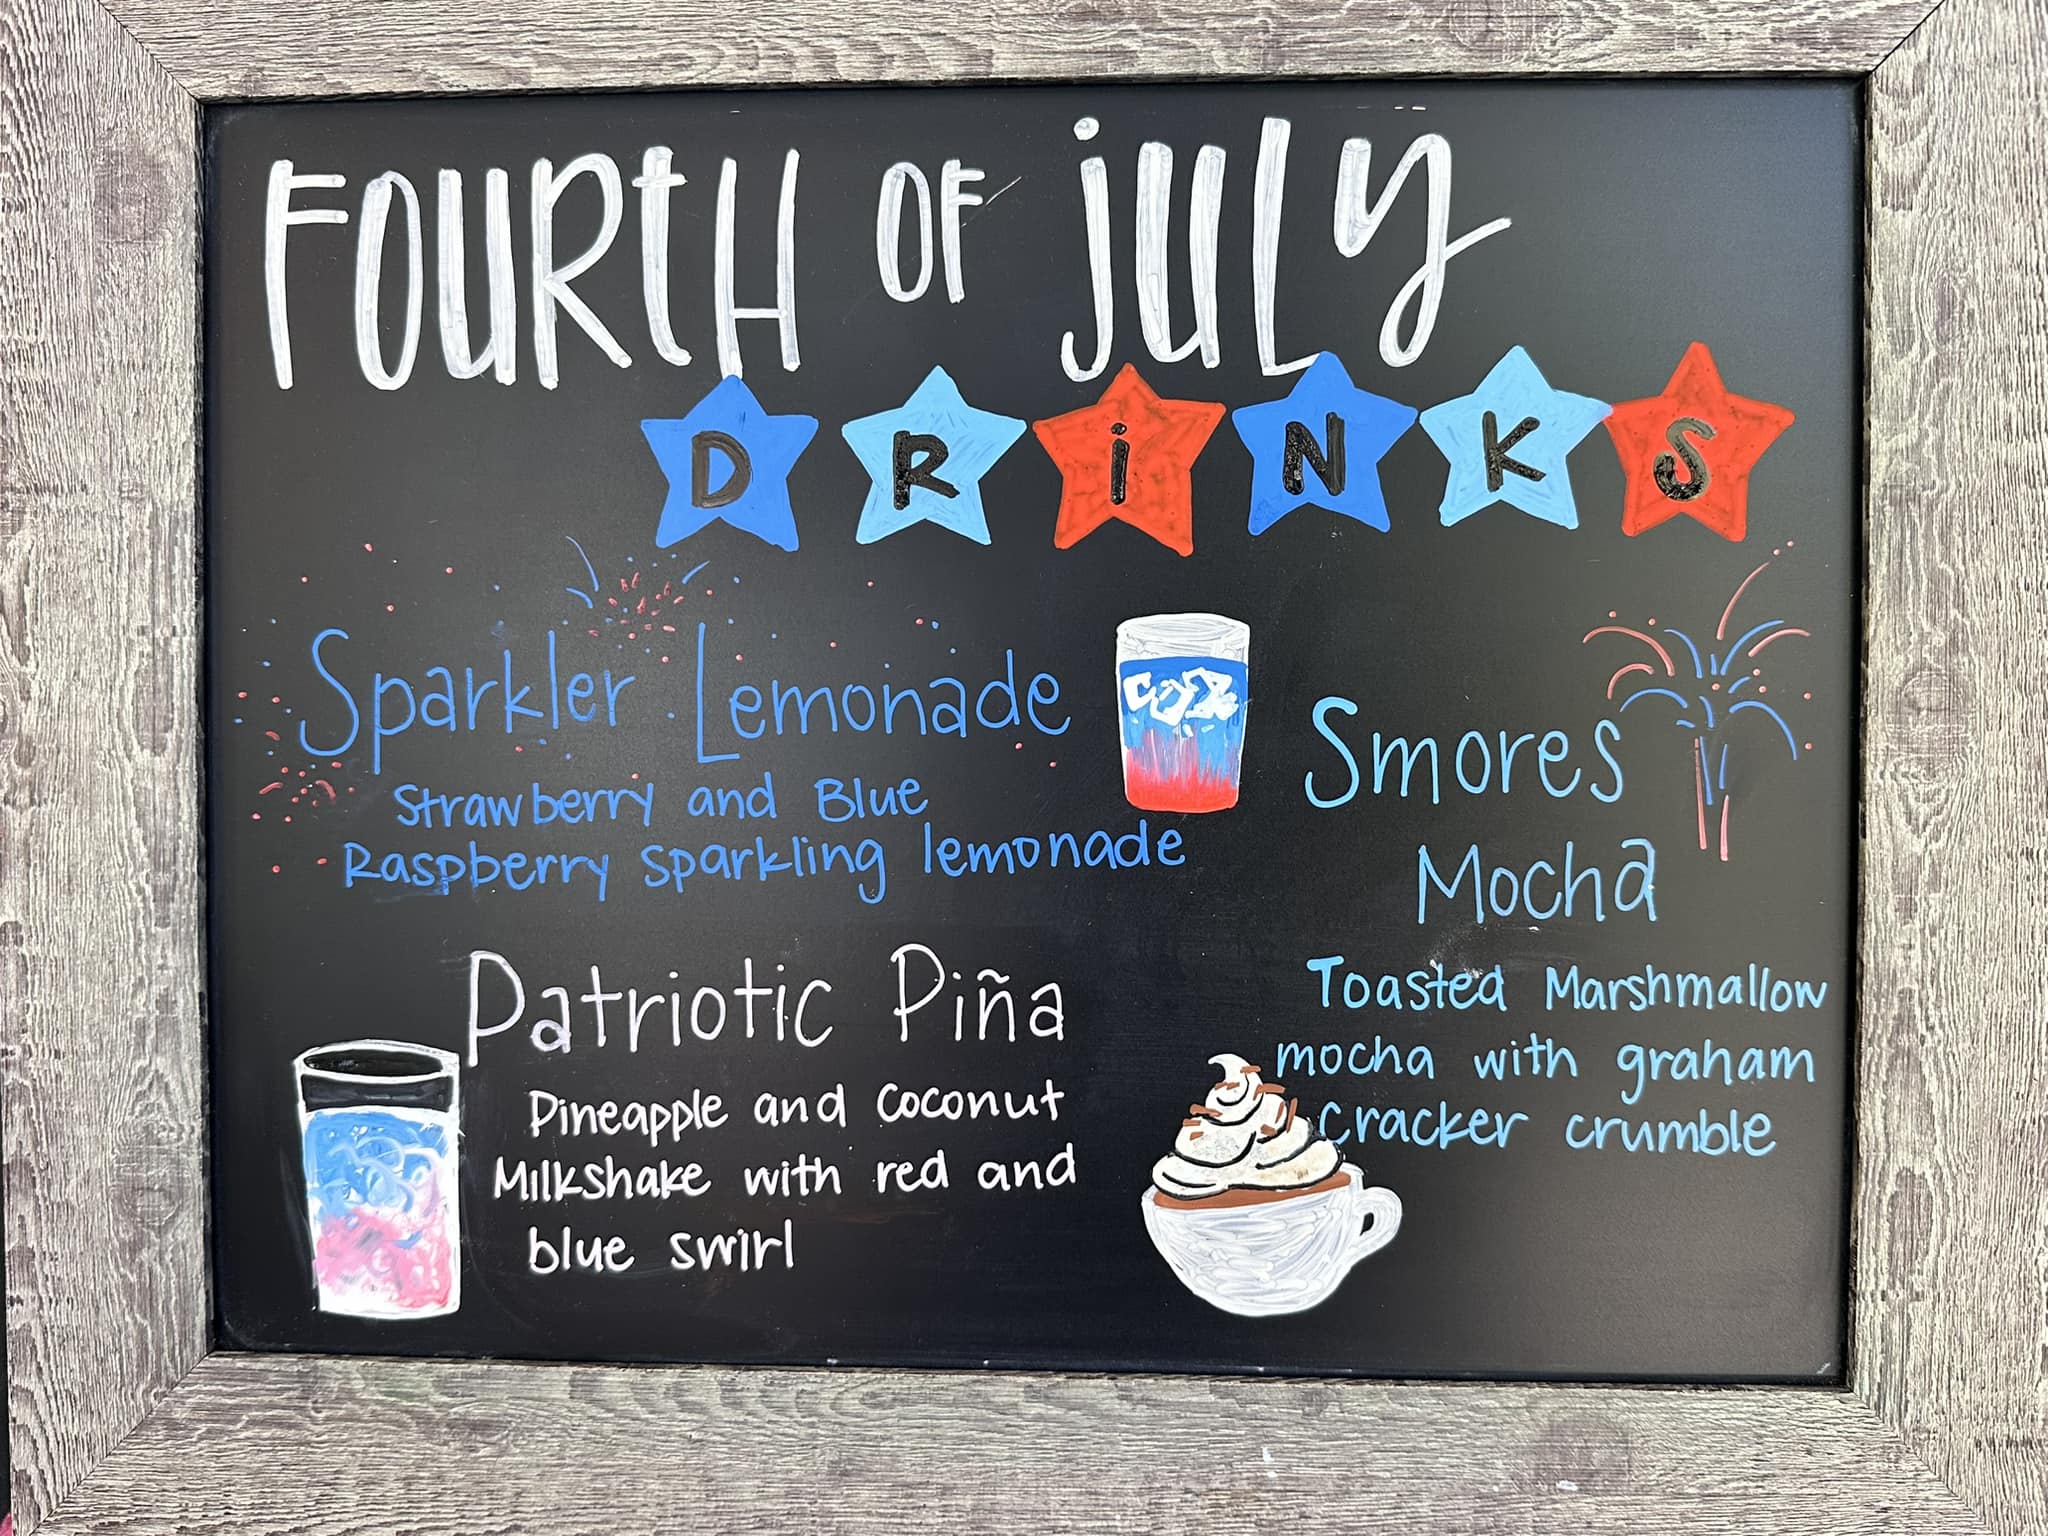 FOURtH OF july
DRiNKS
Sparkler Lemonade
Strawberry and Blue
Raspberry sparkling lemonade
Patriotic Piña
Pineapple and coconut
Milkshake with red and
blue swirl
Smores
Mocha
Toasted Marshmallow
mocha with graham
cracker crumble